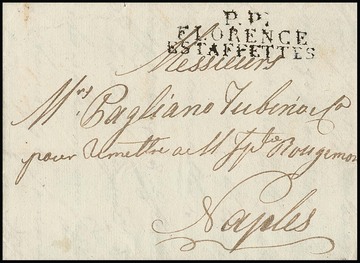 P.P.
FLORENCE
ESTAFFETTES
Messieurs
Mrs Pagliano Tubino & Co
pour remettre a M Jph Rougemon
Naples